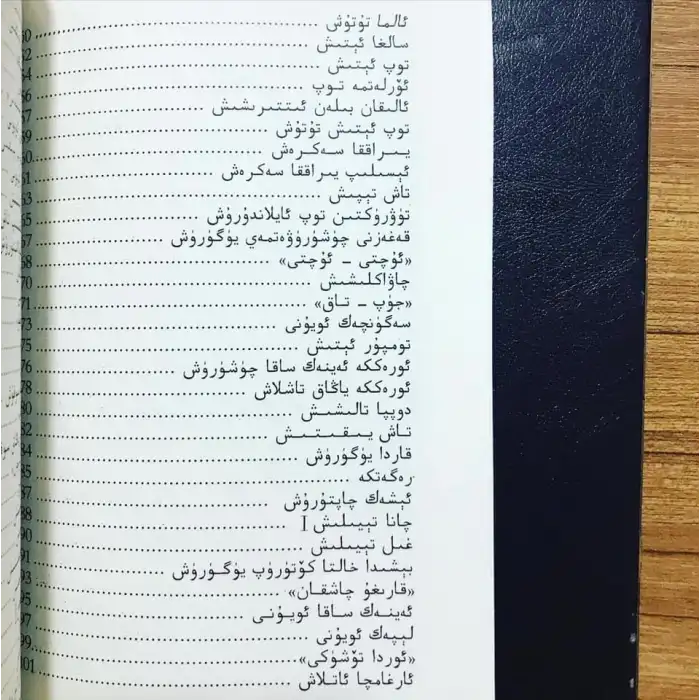 ئالما تۇتۇش ........ 60
سالغا ئېتىش ........ 62
توپ ئېتىش ........ 64
ئۆرلەتمە توپ ........ 66
ئالىقان بىلەن ئىتتىرىشىش ........ 67
توپ ئېتىش تۇتۇش ........ 69
يىراققا سەكرەش ........ 60
ئېسىلىپ يىراققا سەكرەش ........ 61
تاش تېپىش ........ 63
تۈۋرۈكتىن توپ ئايلاندۇرۇش ........ 65
قەغەزنى چۈشۈرۈۋەتمەي يۈگۈرۈش ........ 67
«ئۇچتى - ئۇچتى» ........ 68
چاۋاكلىشىش ........ 70
«جۈپ - تاق» ........ 71
سەگۈنچەك ئويۇنى ........ 73
تومپۇر ئېتىش ........ 75
ئورەككە ئەينەك ساقا چۈشۈرۈش ........ 76
ئورەككە ياڭاق تاشلاش ........ 78
دوپپا تالىشىش ........ 80
تاش يىقىتىش ........ 82
قاردا يۈگۈرۈش ........ 84
رەگەتكە ........ 85
ئېشەك چاپتۇرۇش ........ 87
چانا تېيىلىش I ........ 88
غىل تېيىلىش ........ 90
بېشىدا خالتا كۆتۈرۈپ يۈگۈرۈش ........ 91
«قارىغۇ چاشقان» ........ 93
ئەينەك ساقا ئويۇنى ........ 95
لىپەك ئويۇنى ........ 97
«ئوردا تۆشۈكى» ........ 99
ئارغامچا ئاتلاش ........ 101